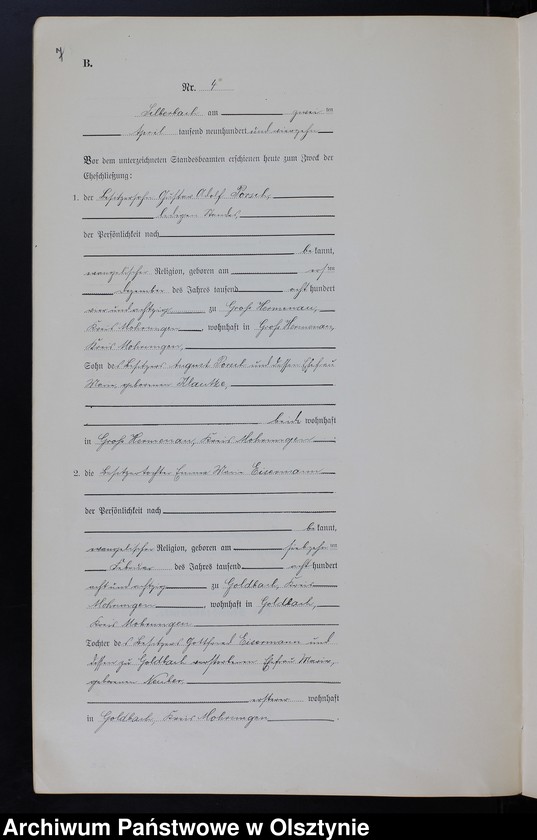 7
B.
Nr. 4
am zwei ten
April tausend neunhundert und vierzehn
Vor dem unterzeichneten Standesbeamten erschienen heute zum Zweck der
Eheschließung:
1. der Besitzersohn Gustav Adolf
ledigen Standes,
der Persönlichkeit nach
bekannt,
evangelischer Religion, geboren am ersten
Dezember des Jahres tausend acht hundert
vierundachtzig zu Groß Hermenau,
Kreis Mohrungen, wohnhaft in Groß Hermenau,
Kreis Mohrungen,
Sohn des Besitzers August und dessen Ehefrau
geborenen Klautke,
beide wohnhaft
in Groß Hermenau, Kreis Mohrungen
2. die Besitzertochter Emma Eisermann
der Persönlichkeit nach
bekannt,
evangelischer Religion, geboren am siebzehn ten
Februar des Jahres tausend acht hundert
achtundachtzig zu Goldbach, Kreis
Mohrungen, wohnhaft in Goldbach,
Kreis Mohrungen
Tochter des Besitzers Gottfried Eisermann und
dessen zu Goldbach verstorbenen Ehefrau Maria,
geborenen Neuber,
ersterer wohnhaft
in Goldbach, Kreis Mohrungen.
Archiwum Państwowe w Olsztynie